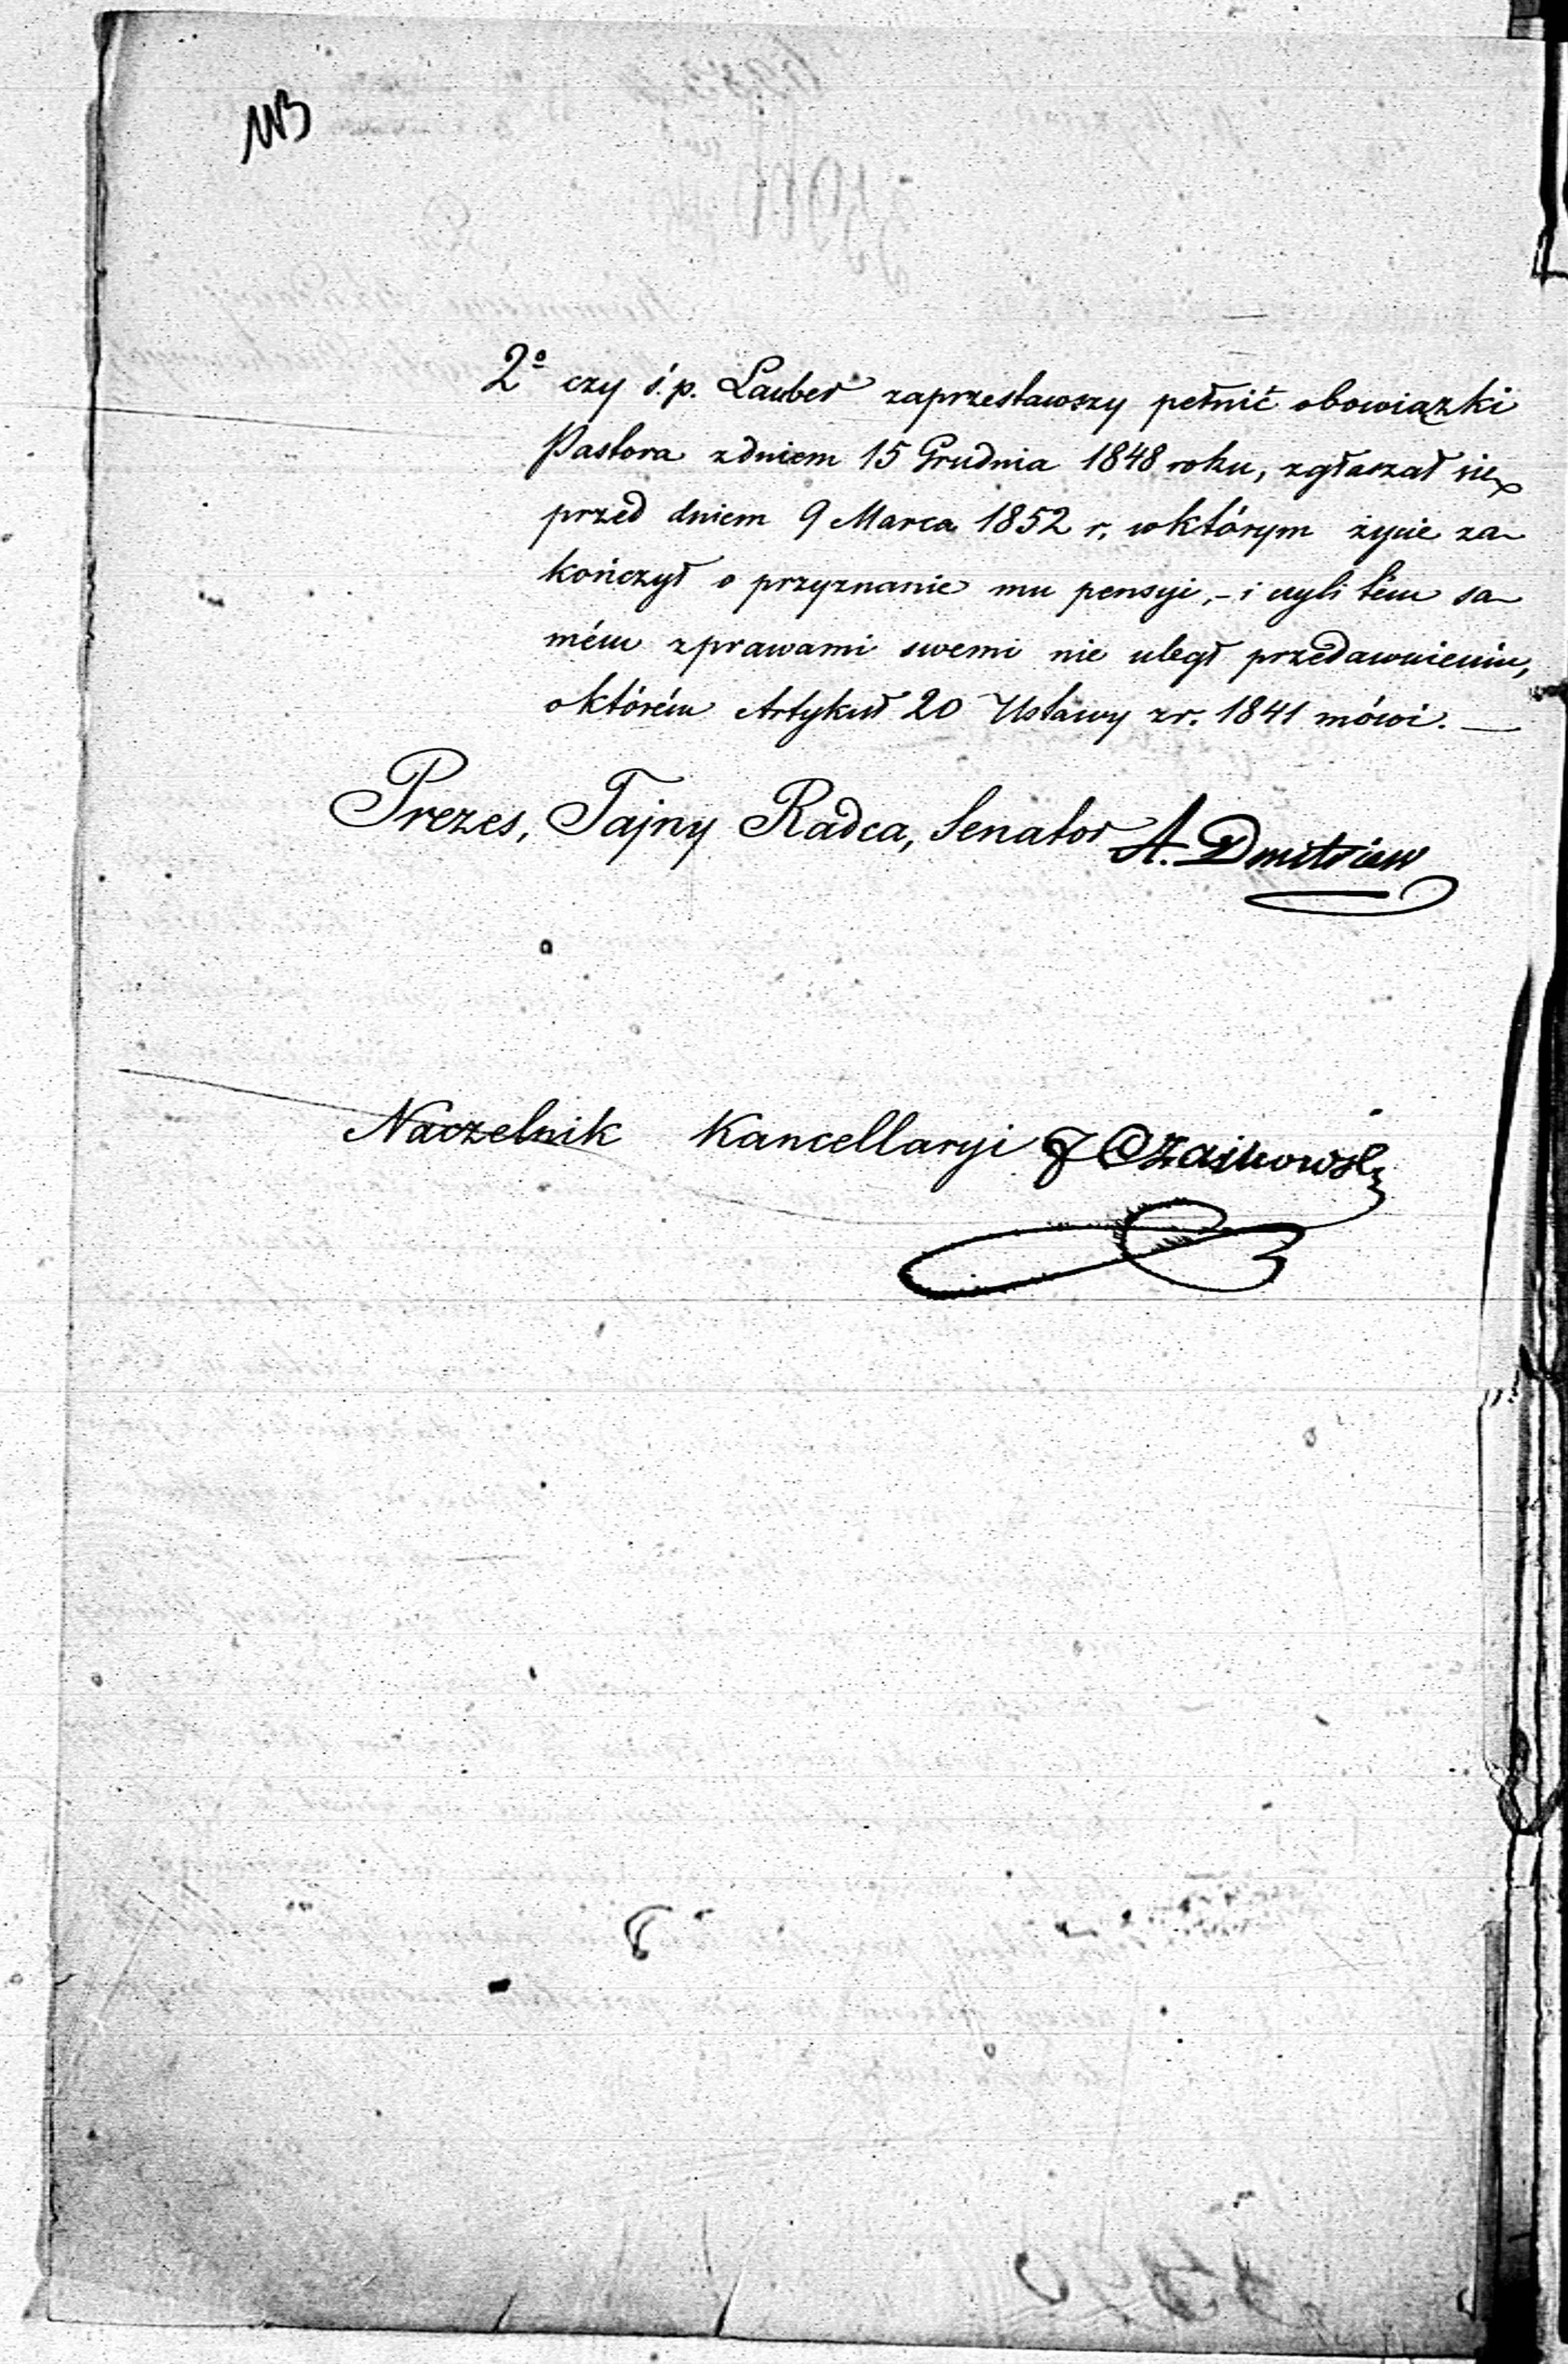 2º czy ś.p. Lauber zaprzestawszy pełnić obowiązki
Pastora z dniem 15 Grudnia 1848 roku, zgłaszał się
przed dniem 9 Marca 1852 r. w którym życie za-
kończył o przyznanie mu pensyi, - i czyli tém sa-
mém z prawami swemi nie uległ przedawnieniu,
o którém Artykuł 20 Ustawy z r. 1841 mówi. —
Prezes, Tajny Radca, Senator A. Dmitriew
Naczelnik Kancellaryi J Czaikowski